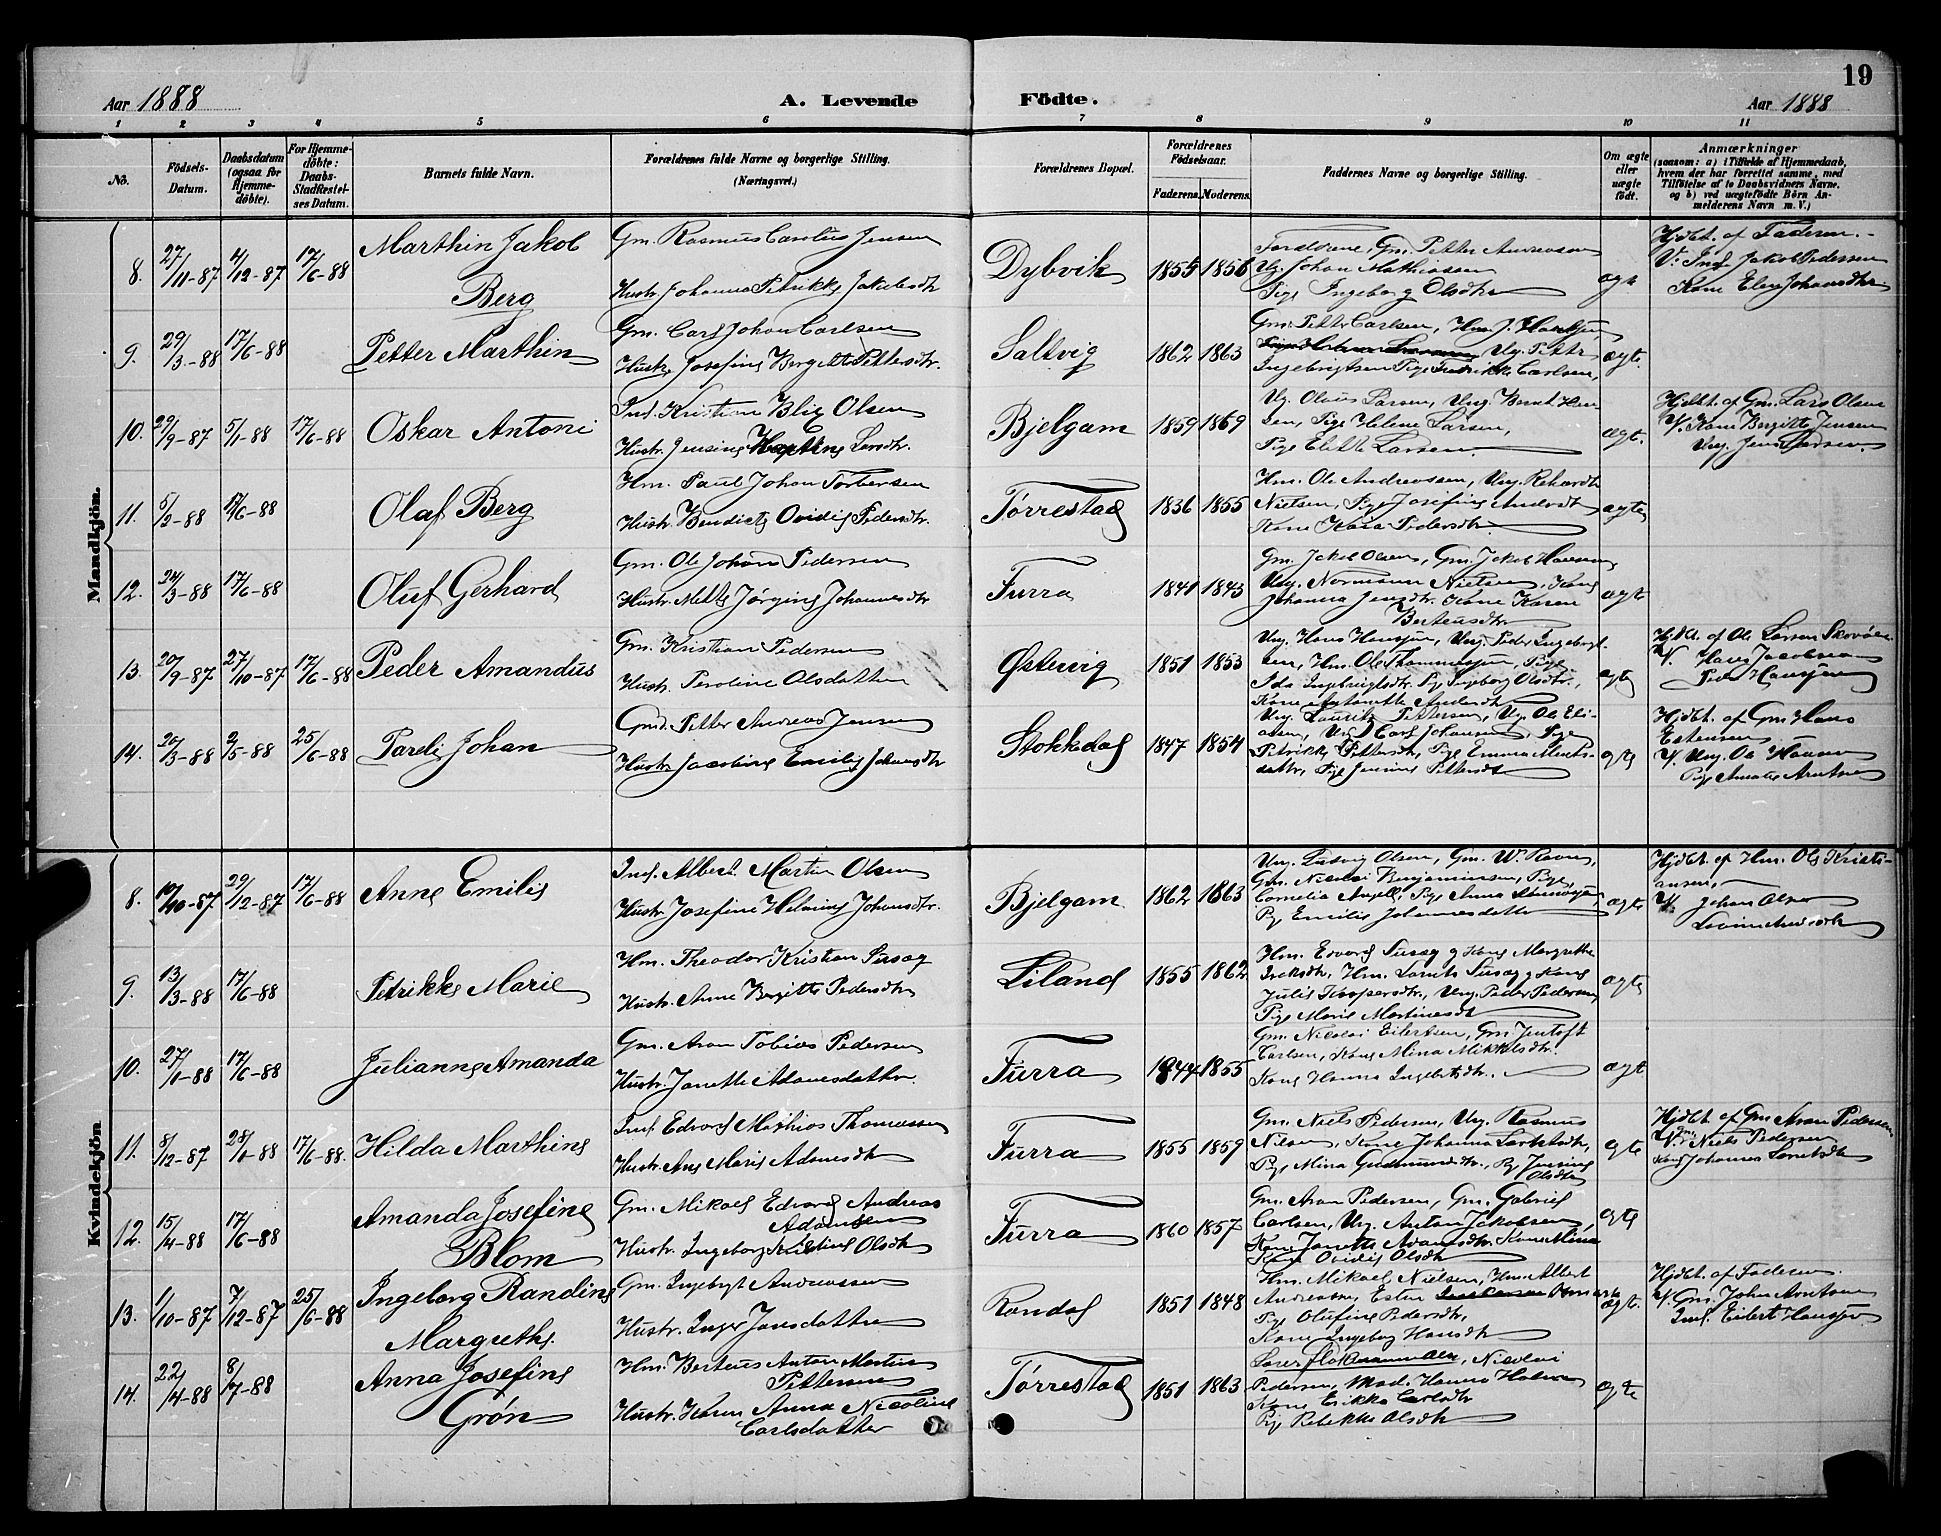 19
Aar 1888
A. Levende Födte.
Aar 1888
1 2 3 4 5 6 7 8 9 10 11
No.
Födsels-Datum.
Daabsdatum (ogsaa for Hjemme-döbte).
For Hjemme-döbte: Daabs-Stadfæstel-ses Datum.
Barnets fulde Navn.
Forældrenes fulde Navne og borgerlige Stilling.
(Næringsvei.)
Forældrenes Bopæl.
Forældrenes Födselsaar.
Faderens. Moderens.
Faddernes Navne og borgerlige Stilling.
Om ægte eller uægte födt.
Anmærkninger
(saasom: a) i Tilfælde af Hjemmedaab,
hvem der har forrettet samme, med
Tilföielse af to Daabsvidners Navne.
og b) ved uægtefödte Börn An-
melderens Navn m. V.)
Mandkjön.
8. 27/11-87 4/12-87 17/6-88 Marthin Jakob Berg
Gm. Rasmus Carolus Jensen
Hustr. Johanna Petrikke Jakobsdtr
Dybvik 1855 1856
Forældrene, Gm. Petter Andreassen
Ug. Johan Mathiassen
Pige Ingeborg Olsdtr
ægte
Hjdbt. af Faderen.
V: Ind. Jakob Pedersen
Kone Elen Johansdtr
9. 29/3-88 17/6-88 Petter Marthin
Gm. Carl Johan Carlsen
Hustr. Josefine Bergitte Pettersdtr.
Saltvig 1862 1863
Gm. Petter Carlsen,
Ung. Petter
Ingebrigtsen Pige Fredrikke Carlsen,
ægte.
10. 29/9-87 5/1-88 17/6-88 Oskar Antoni
Ind. Kristian Blix Olsen
Hustr. Jensine Larsdtr.
Bjelgam 1859 1869
Ug. Olaus Larsen, Ung. Bernt Han-
sen, Pige Helene Larsen,
Pige Elitte Larsen.
ægte.
Hjdbt. af Gm. Lars Olsen
V. Kone Bergitte Jensen
Ung. Jens Larsen.
11. 5/2-88 17/6-88 Olaf Berg
Hm. Paul Johan Torbersen
Hustr. Bendicte Ovidie Pedersdtr.
Tørrestad 1836 1855
Hm. Ole Andreassen, Ung. Rikardt
Nielsen, Pige Josefine Andersdtr
Kone Kaia Pedersdtr
ægte
12. 24/3-88 17/6-88 Oluf Gerhard
Gm. Ole Johan Pedersen
Hustr. Mette Jørgine Johannesdtr
Furra 1841 1843
Gm. Jakob Olsen, Gm. Jakob Hansen
Ung. Normann Nielsen, Kone
Johanna Jensdtr. Kone Karen
Berteusdtr
ægte
13. 20/9-87 27/10-87 17/6-88 Peder Amandus
Gm. Kristian Pedersen
Hustr. Peroline Olsdatter
Østervig 1851 1853
Ung. Hans Hansen, Ung. Peder Ingebrigt-
sen, Hm. Ole Thommesen, Pige
Ida Ingebrigtsdtr. Pige Ingeborg Olsdtr.,
Kone Antonette Andersdtr
ægte
Hjdbt. af Ole Larsen
V. Hans Jacobsen
Peder Hansen
14. 20/3-88 2/5-88 25/6-88 Pareli Johan
Gmd. Petter Andreas Jensen
Hustr. Jacobine Emilie Johansdtr
Stokkdal 1847 1854
Ung. Lauritz Pettersen, Ug. Ole Eli-
asen, Ung. Carl Johansen, Pige
Petrikke Pettersdtr, Pige Emma
datter, Pige Jensine Pettersdtr
ægte
Hjdbt. af Gm. Hans
Estensen
V. Ung. Ole Hansen
Pige Amalie Arntsen
Kvindekjön.
8. 19/10-87 29/12-87 17/6-88 Anne Emilie
Ind. Albert Martin Olsen
Hustr. Josefine Helmine Johansdtr.
Bjelgam 1862 1863
Ung. Ludvig Olsen, Gm. W. Ravn,
Gm. Nicolai Benjaminsen, Pige
Cornelia Angell, Pige Anna
Pige Emilie Johannesdatter
ægte
Hjdbt. af Hm. Ole Kristi-
ansen,
V. Johan Olsen
9. 13/3-88 17/6-88 Petrikke Marie
Hm. Theodor Kristian Sursog
Hustr. Anne Bergitte Pedersdtr
Liland 1855 1862
Hm. Edvard og Kone Margrethe
Isaksdtr, Hm. og Kone
Julie Kaspersdtr., Ung. Peder Pedersen,
Pige Marie Martinesdtr
ægte
10. 27/1-88 17/6-88 Julianne Amanda
Gm. Aron Tobias Pedersen
Hustr. Janette Adamsdatter.
Furra 1844 1855
Gm. Nicolai Eilertsen, Gm. Jentoft
Carlsen, Kone Mina Mikkelsdtr.
Kone Hanna Ingebrigtsdtr.
ægte
11. 8/12-87 28/1-88 17/6-88. Hilda Marthine
Ind. Edvard Mathias Thomassen
Hustr. Ane Marie Adamsdtr
Furra 1855 1859
Gm. Niels Pedersen, Ung. Rasmus
Nilsen, Kone Johanna Lorntsdtr,
Pige Mina Gudmundsdtr., Pige Jensine
Olsdtr
ægte
Hjdbt. af Gm. Aron Pedersen
V. Gm. Niels Pedersen
Kone Johanna Lorntsdtr
12. 15/4-88 17/6-88 Amanda Josefine Blom
Gm. Mikael Edvard Andreas
Adamsen
Hustr. Ingeborg Kristine Olsdtr
Furra 1860 1857
Gm. Aron Pedersen, Gm. Gabriel
Carlsen, Ung. Anton Jakobsen,
Kone Janette Adamsdtr. Kone Mina
Kone Ovidie Olsdtr
ægte
13. 1/10-87 7/12-87 25/6-88 Ingeborg Randine Margrethe.
Gm. Ingebrgt Andreassen
Hustr. Inger Jonsdatter
Rondal 1851 1848
Hm. Mikael Nielsen, Hm. Albert
Andreassen, Esten
Pige Olufine Pedersdtr,
Kone Ingeborg Hansdtr
ægte.
Hjdbt. af Faderen.
V. Gm. John Arntsen
Ind. Eilert Hansen
14. 22/4-88 8/7-88 Anna Josefine Grøn
Hm. Berteus Anton Martin
Pettersen
Hustr. Karen Anna Nicoline
Carlsdatter
Tørrestad 1851 1863
Nicolai
Pedersen, Mad. Hanna Holm
Kone Erikka Carlsdtr
Pige Rebekka Olsdtr
ægte